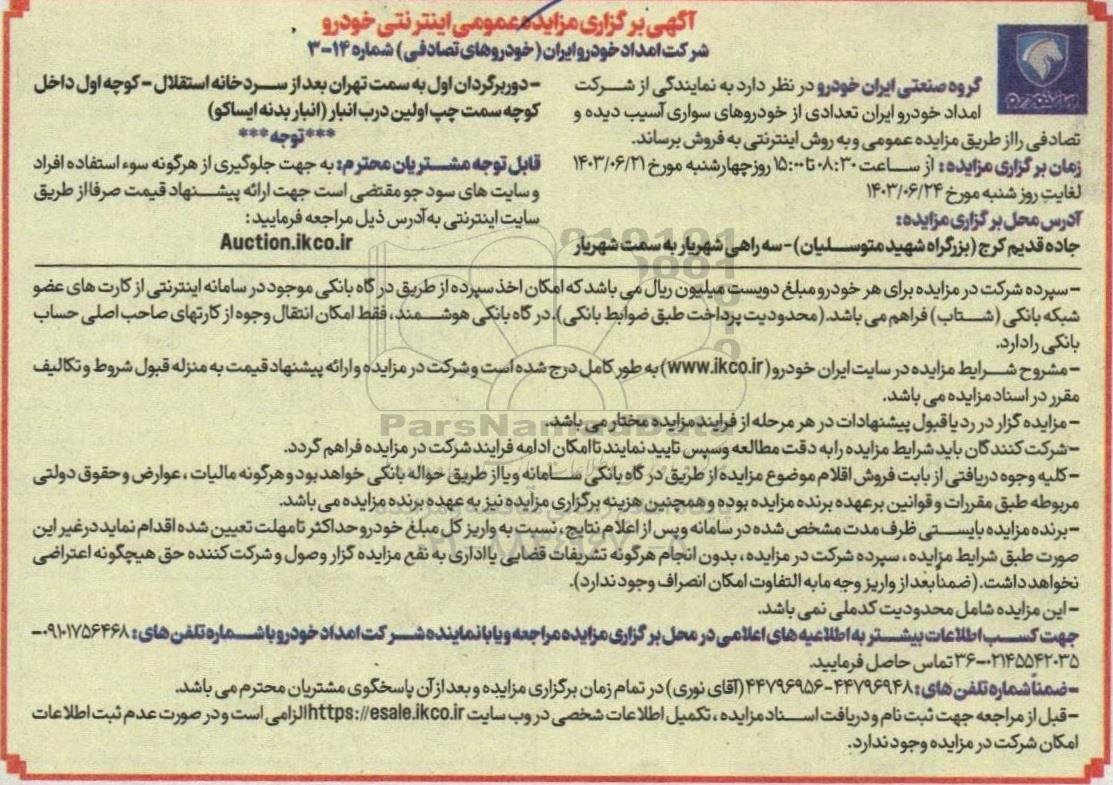 آگهی برگزاری مزایده عمومی اینترنتی خودرو
شرکت امداد خودرو ایران (خودروهای تصادفی) شماره ۱۴-۳
گروه صنعتی ایران خودرو در نظر دارد به نمایندگی از شرکت
امداد خودرو ایران تعدادی از خودروهای سواری آسیب دیده و
تصادفی را از طریق مزایده عمومی و به روش اینترنتی به فروش برساند.
زمان برگزاری مزایده: از ساعت ۰۸:۳۰ تا ۱۵:۰۰ روز چهارشنبه مورخ ۱۴۰۳/۰۶/۲۱
لغایت روز شنبه مورخ ۱۴۰۳/۰۶/۲۴
آدرس محل برگزاری مزایده:
جاده قدیم کرج (بزرگراه شهید متوسلیان) - سه راهی شهریار به سمت شهریار
- دور برگردان اول به سمت تهران بعد از سردخانه استقلال - کوچه اول داخل
کوچه سمت چپ اولین درب انبار (انبار بدنه ایساکو)
***توجه***
قابل توجه مشتریان محترم: به جهت جلوگیری از هرگونه سوء استفاده افراد
و سایت های سود جو مقتضی است جهت ارائه پیشنهاد قیمت صرفا از طریق
سایت اینترنتی به آدرس ذیل مراجعه فرمایید:
Auction.ikco.ir
- سپرده شرکت در مزایده برای هر خودرو مبلغ دویست میلیون ریال می باشد که امکان اخذ سپرده از طریق درگاه بانکی موجود در سامانه اینترنتی از کارت های عضو
شبکه بانکی (شتاب) فراهم می باشد. (محدودیت پرداخت طبق ضوابط بانکی). درگاه بانکی هوشمند، فقط امکان انتقال وجوه از کارتهای صاحب اصلی حساب
بانکی را دارد.
- مشروح شرایط مزایده در سایت ایران خودرو (www.ikco.ir) به طور کامل درج شده است و شرکت در مزایده و ارائه پیشنهاد قیمت به منزله قبول شروط و تکالیف
مقرر در اسناد مزایده می باشد.
- مزایده گزار در رد یا قبول پیشنهادات در هر مرحله از فرایند مزایده مختار می باشد.
- شرکت کنندگان باید شرایط مزایده را به دقت مطالعه و سپس تایید نمایند تا امکان ادامه فرایند شرکت در مزایده فراهم گردد.
- کلیه وجوه دریافتی از بابت فروش اقلام موضوع مزایده از طریق درگاه بانکی سامانه و یا از طریق حواله بانکی خواهد بود و هرگونه مالیات، عوارض و حقوق دولتی
مربوطه طبق مقررات و قوانین بر عهده برنده مزایده بوده و همچنین هزینه برگزاری مزایده نیز به عهده برنده مزایده می باشد.
- برنده مزایده بایستی ظرف مدت مشخص شده در سامانه و پس از اعلام نتایج، نسبت به واریز کل مبلغ خودرو حداکثر تا مهلت تعیین شده اقدام نماید در غیر این
صورت طبق شرایط مزایده، سپرده شرکت در مزایده، بدون انجام هرگونه تشریفات قضایی یا اداری به نفع مزایده گزار وصول و شرکت کننده حق هیچگونه اعتراضی
نخواهد داشت. (ضمناً بعد از واریز وجه مابه التفاوت امکان انصراف وجود ندارد).
- این مزایده شامل محدودیت کدملی نمی باشد.
جهت کسب اطلاعات بیشتر به اطلاعیه های اعلامی در محل برگزاری مزایده مراجعه و یا با نماینده شرکت امداد خودرو با شماره تلفن های: ۰۹۱۰۱۷۵۶۴۶۸-
۰۲۱۴۵۵۴۲۰۳۵-۳۶ تماس حاصل فرمایید.
- ضمناً شماره تلفن های: ۴۴۷۹۶۹۴۸-۴۴۷۹۶۹۵۶ (آقای نوری) در تمام زمان برگزاری مزایده و بعد از آن پاسخگوی مشتریان محترم می باشد.
- قبل از مراجعه جهت ثبت نام و دریافت اسناد مزایده، تکمیل اطلاعات شخصی در وب سایت https://esale.ikco.ir الزامی است و در صورت عدم ثبت اطلاعات
امکان شرکت در مزایده وجود ندارد.
ParsNamadData